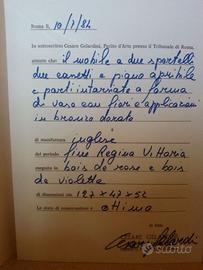 Roma li, 10/7/84
Io sottoscritto Cesare Gelardini, Perito d'Arte presso il Tribunale di Roma,
attesto che: il mobile a due sportelli
due cassetti, e piano apribile
e parti intarsiate a forma
di vaso con fiori e applicazioni
in bronzo dorato
è
di manifattura inglese
del periodo fine Regina Vittoria
eseguito in bois de rose e bois
de violette
di dimensioni cm. 127 x 47 x 52
Lo stato di conservazione è ottimo
in fede
subito